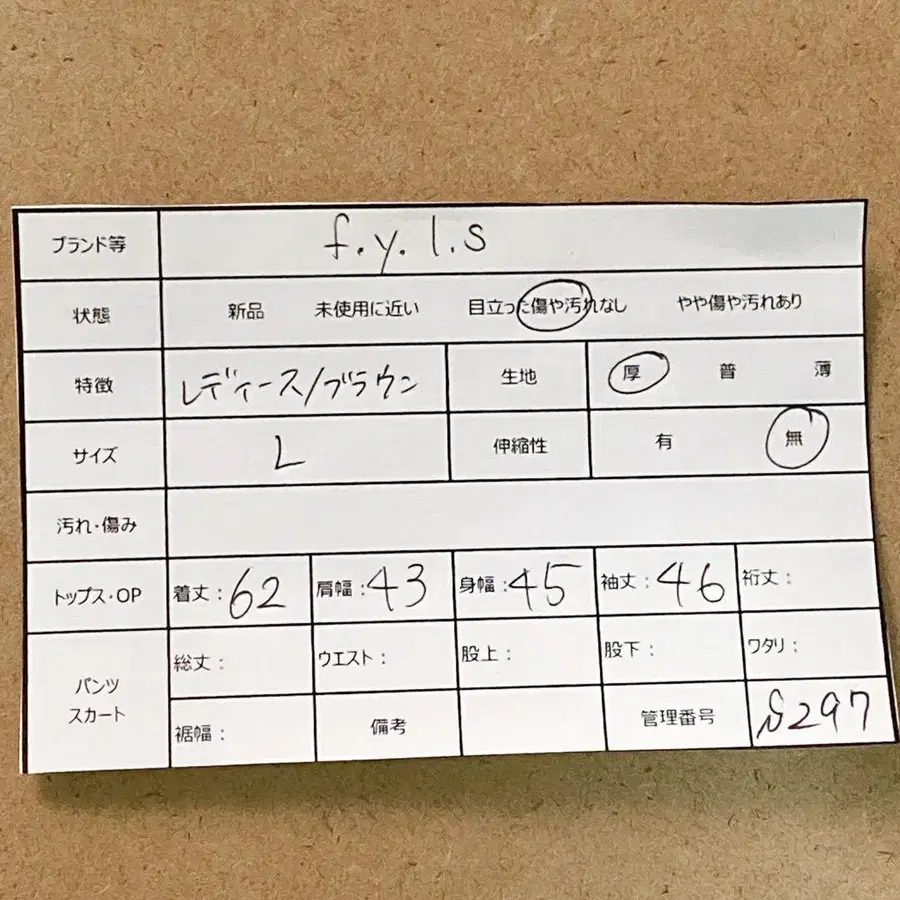 ブランド等 f.y.l.s
状態 新品 未使用に近い 目立った傷や汚れなし やや傷や汚れあり
特徴 レディース/ブラウン 生地 厚 普 薄
サイズ L 伸縮性 有 無
汚れ・傷み
トップス・OP 着丈:62 肩幅:43 身幅:45 袖丈:46 裄丈:
パンツ スカート 総丈: ウエスト: 股上: 股下: ワタリ:
裾幅: 備考 管理番号 S297